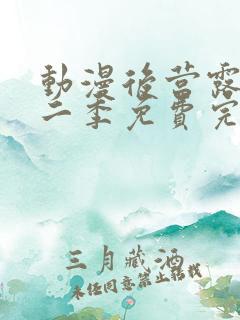 動漫後菅露
二季免費完
三月藏酒
未经同意禁止转载